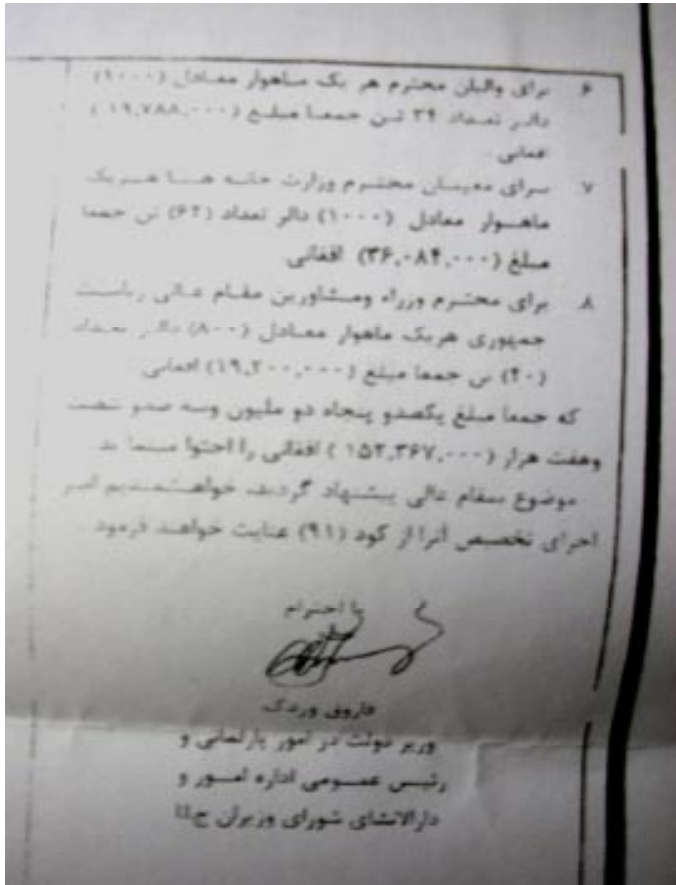 ۶ برای والیان محترم هر یک ماهوار معادل (۱۰۰۰)
دالر تعداد ۳۴ تن جمعا مبلغ (۱۹,۷۸۸,۰۰۰)
افغانی.
۷ برای معینان محترم وزارت خانه ها هریک
ماهوار معادل (۱۰۰۰) دالر تعداد (۶۲) تن جمعا
مبلغ (۳۶,۰۸۴,۰۰۰) افغانی
۸ برای محترم وزراء ومشاورین مقام عالی ریاست
جمهوری هریک ماهوار معادل (۸۰۰) دالر تعداد
(۴۰) تن جمعا مبلغ (۱۹,۲۰۰,۰۰۰) افغانی
که جمعا مبلغ یکصدو پنجاه دو ملیون وسه صدو شصت
وهفت هزار (۱۵۲,۳۶۷,۰۰۰) افغانی را احتوا مینماید
موضوع بمقام عالی پیشنهاد گردید، خواهشمندیم امر
اجرای تخصیص آنرا از کود (۹۱) عنایت خواهند فرمود
با احترام
فاروق وردک
وزیر دولت در امور پارلمانی و
رئیس عمومی اداره امور و
دارالانشای شورای وزیران ج.ا.ا